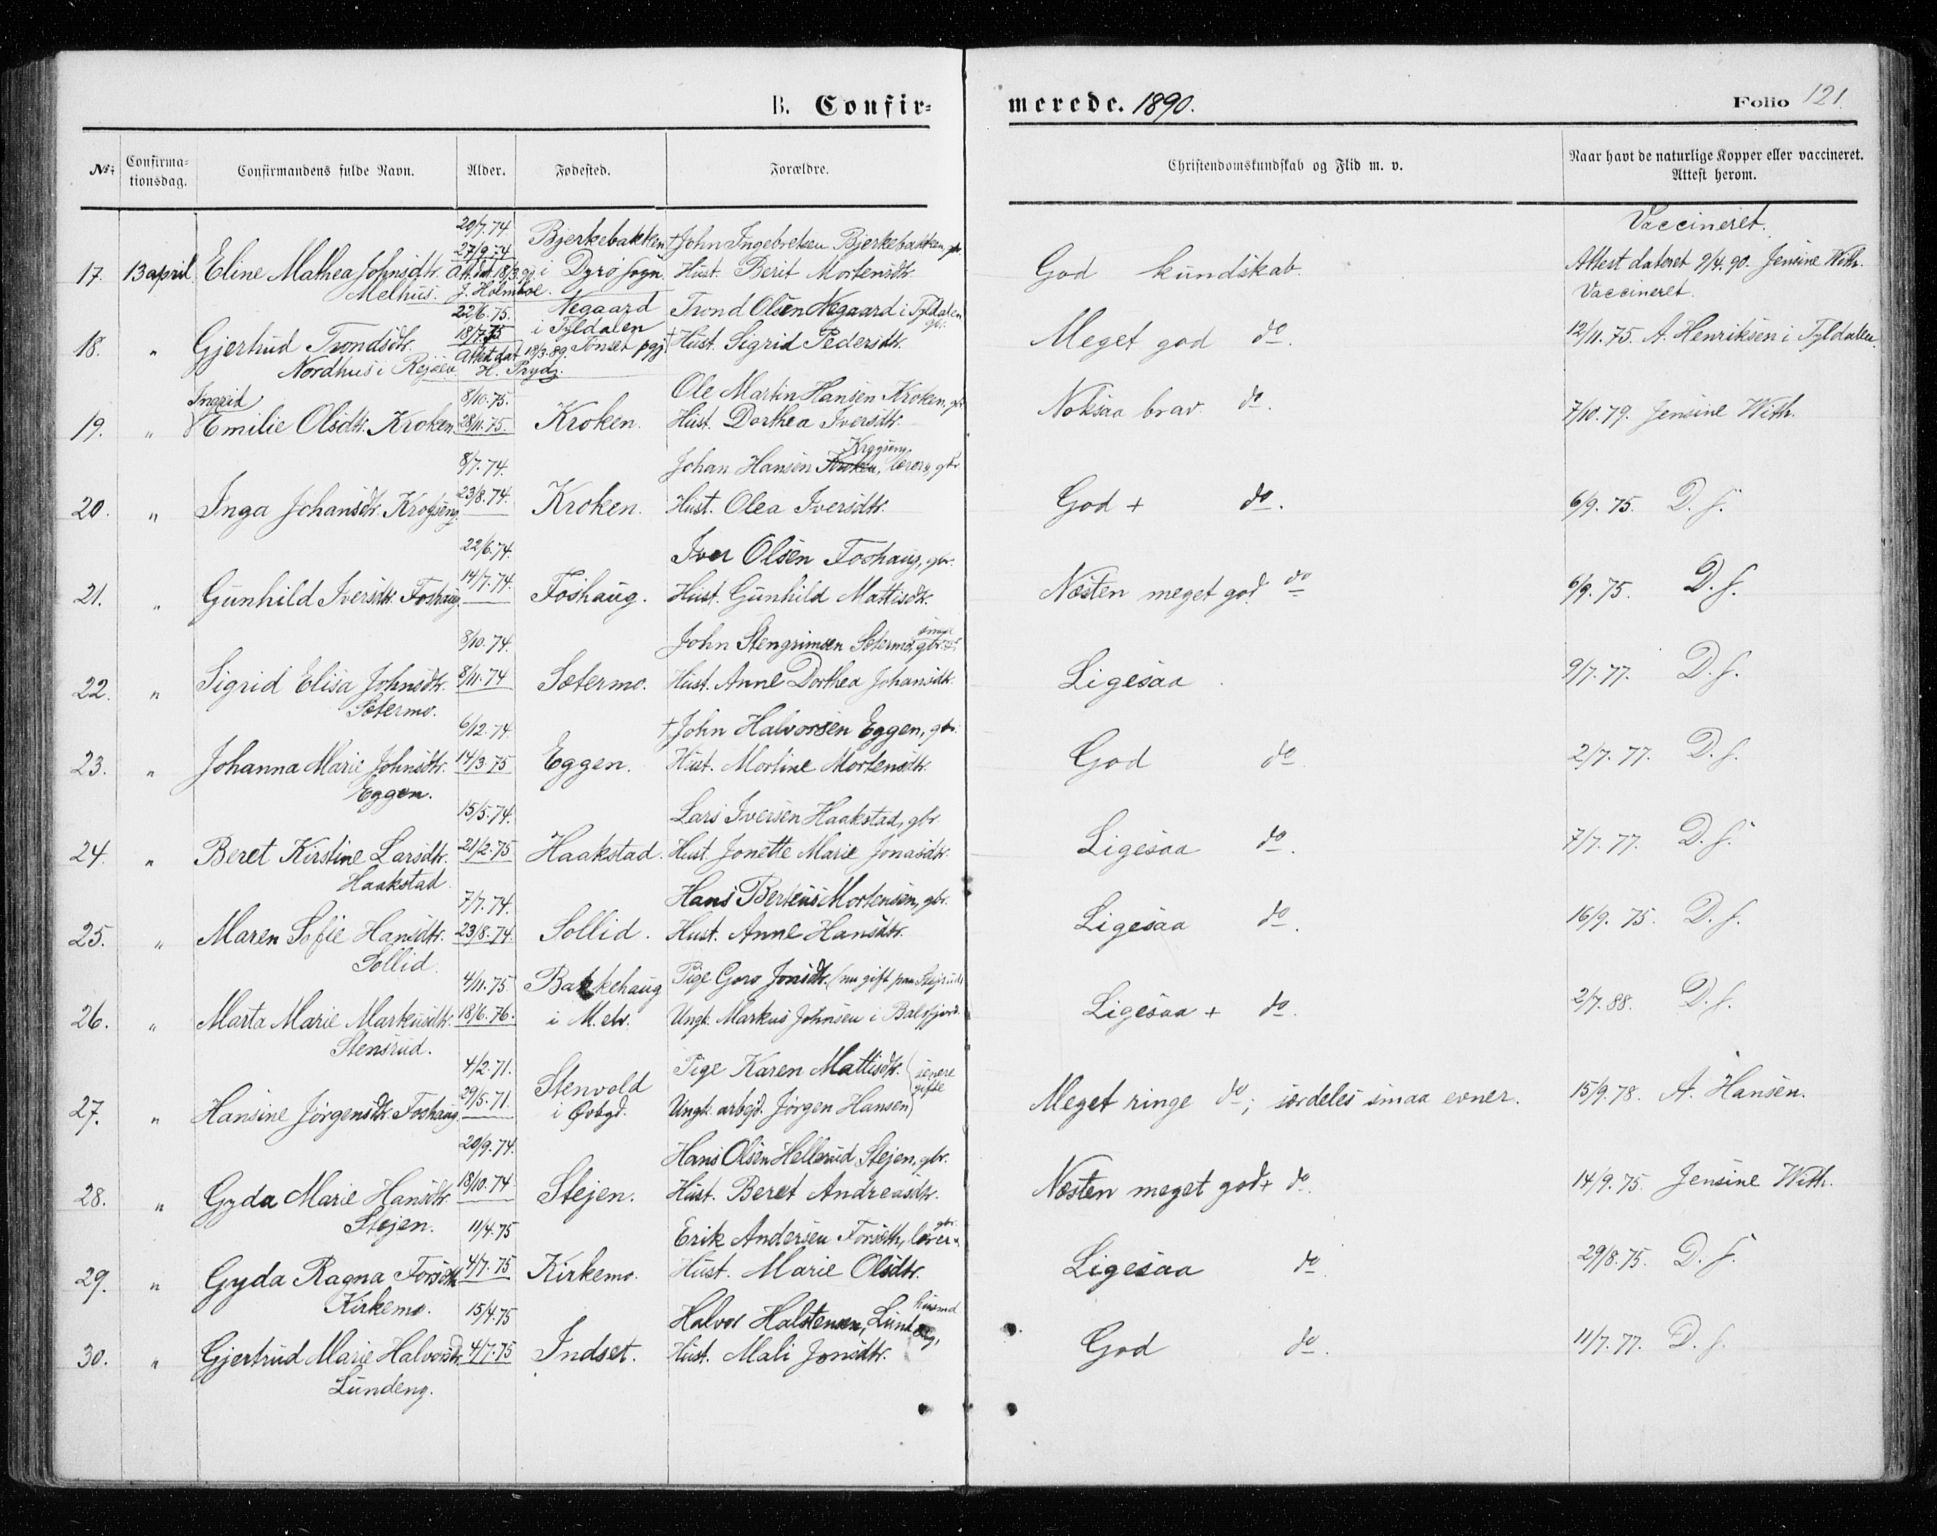 B. Confir-
merede. 1890.
Folio 121.
No.
Confirma-
tionsdag.
Confirmandens fulde Navn.
Alder.
Fødested.
Forældre.
Christendomskundskab og Flid m. v.
Naar havt de naturlige Kopper eller vaccineret.
Attest herom.
20/7.74
27/9.74
Bjerkebakken
† John Ingebretsen Bjerkebakken, gbr
Vaccineret.
17. 13 april Eline Mathea Johnsdtr. Att. dat. 18/3.90 i Dyrø sogn Hust. Berit Mortensdtr. God kundskab. Attest dateret 9/4.90. Jensine With.
Melhus. J. Holmboe.
Vaccineret.
22/6.75. Negaard Trond Olsen Negaard i Tyldalen gbr.
18. " Gjertrud Trondsdtr. 18/7.75 i Tyldalen † Hust. Sigrid Pedersdtr. Meget god do. 12/11.75. A. Henriksen i Tyldalen.
Nordhus i Attest dat. 12/3.89. Tønset pgj.
H.
Ingrid 8/10.75. Ole Martin Hansen Kroken, gbr
19. " Emilie Olsdtr. Kroken 28/11.75. Kroken. Hust. Dorthea Iversdtr. Noksaa brav do. 7/10.79. Jensine With.
8/7.74. Johan Hansen Kroken, lærer, gbr
20. " Inga Johansdtr. 23/8.74. Kroken. Hust. Olea Iversdtr. God + do. 6/9.75. D. s.
22/6.74. Iver Olsen Foshaug, gbr.
21. " Gunhild Iversdtr. Foshaug 14/7.74. Foshaug. Hust. Gunhild Mattisdtr. Næsten meget god do 6/9.75. D. s.
8/10.74. John Stengrimsen Sætermo, gbr
22. " Sigrid Elisa Johnsdtr. 8/11.74 Sætermo. Hust. Anne Dorthea Johansdtr. Ligesaa. 9/7.77. D. s.
Sætermo.
6/12.74. † John Halvorsen Eggen, gbr.
23. " Johanna Marie Johnsdtr. 14/3.75 Eggen. Hust. Mortine Mortensdtr. God do 2/7.77. D. s.
Eggen.
15/5.74. Lars Iversen Haakstad, gbr
24. " Beret Kirstine Larsdtr. 21/2.75 Haakstad. Hust. Jonette Marie Jonasdtr. Ligesaa do. 7/7.77. D. s.
Haakstad.
7/7.74. Hans Berteus Mortensen, gbr.
25. " Maren Sofie Hansdtr. 23/8.74. Sollid. Hust. Anne Hansdtr. Ligesaa do. 16/9.75. D. s.
Sollid.
4/11.75 Bakkehaug Pige Goro Jonsdtr. (nu gift paa
26. " Marta Marie Markusdtr. 18/6.76. i M.elv. Ungk. Markus Johnsen i Balsfjord. Ligesaa + do. 2/7.88. D. s.
Stensrud.
4/2.71. Stenvold Pige Karen Mattisdtr. (senere
27. " Hansine Jørgensdtr. Foshaug 29/5.71. i Øvbgd. Ungk. arbejd. Jørgen Hansen) gifte Meget ringe do; særdeles smaa evner. 15/9.78. A. Hansen.
20/9.74. Hans Olsen Hellerud Stejen, gbr.
28. " Gyda Marie Hansdtr. 18/10.74 Stejen. Hust. Beret Andreasdtr. Næsten meget god + do. 14/9.75. Jensine With.
Stejen.
11/4.75 Erik Andersen Forseth, lærer gbr.
29. " Gyda Ragna Forseth 4/7.75 Kirkemo. Hust. Marie Olsdtr. Ligesaa do. 29/8.75. D. s.
Kirkemo.
15/4.75 Halvor Halstensen, Lundeng, husmd
30. " Gjertrud Marie Halvorsdtr 4/7.75 Indset. Hust. Mali Jonsdtr. God do. 11/7.77. D. s.
Lundeng.